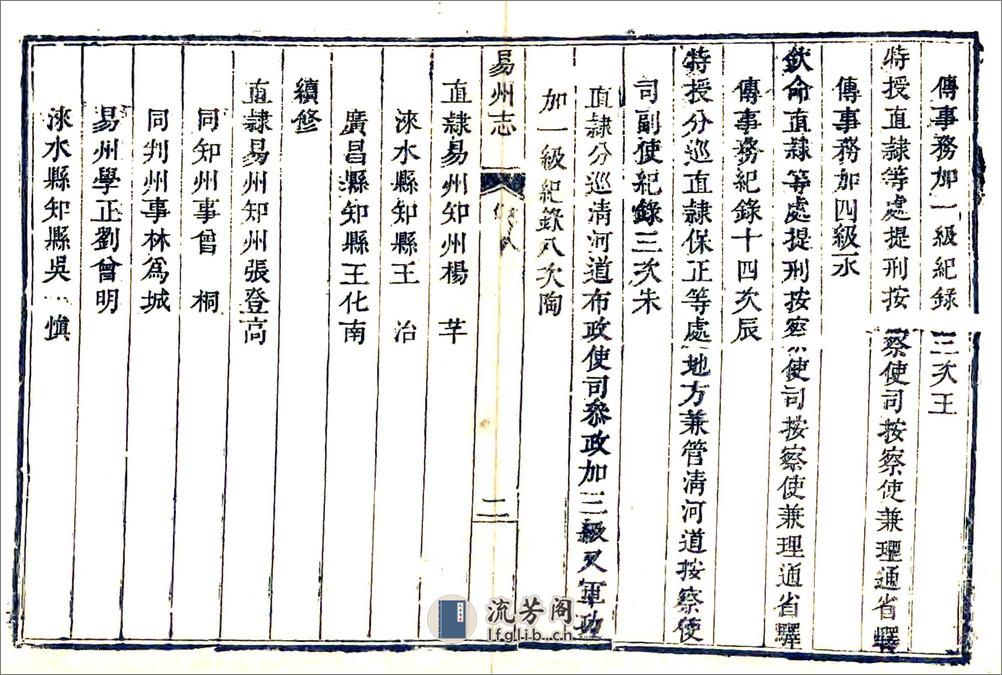 傳事務加一級紀録三次王
特授直隷等處提刑按察使司按察使兼理通省驛
傳事務加四級永
欽命直隷等處提刑按察使司按察使兼理通省驛
傳事務紀錄十四次辰
特授分巡直隷保正等處地方兼管清河道按察使
司副使紀錄三次朱
直隷分巡清河道布政使司叅政加三級又軍功
加一級紀錄八次陶
易州志
二
直隷易州知州楊芊
淶水縣知縣王治
廣昌縣知縣王化南
續修
直隷易州知州張登高
同知州事曾桐
同判州事林爲城
易州學正劉曾明
淶水縣知縣吳慎
流芳阁
lfglib.cn